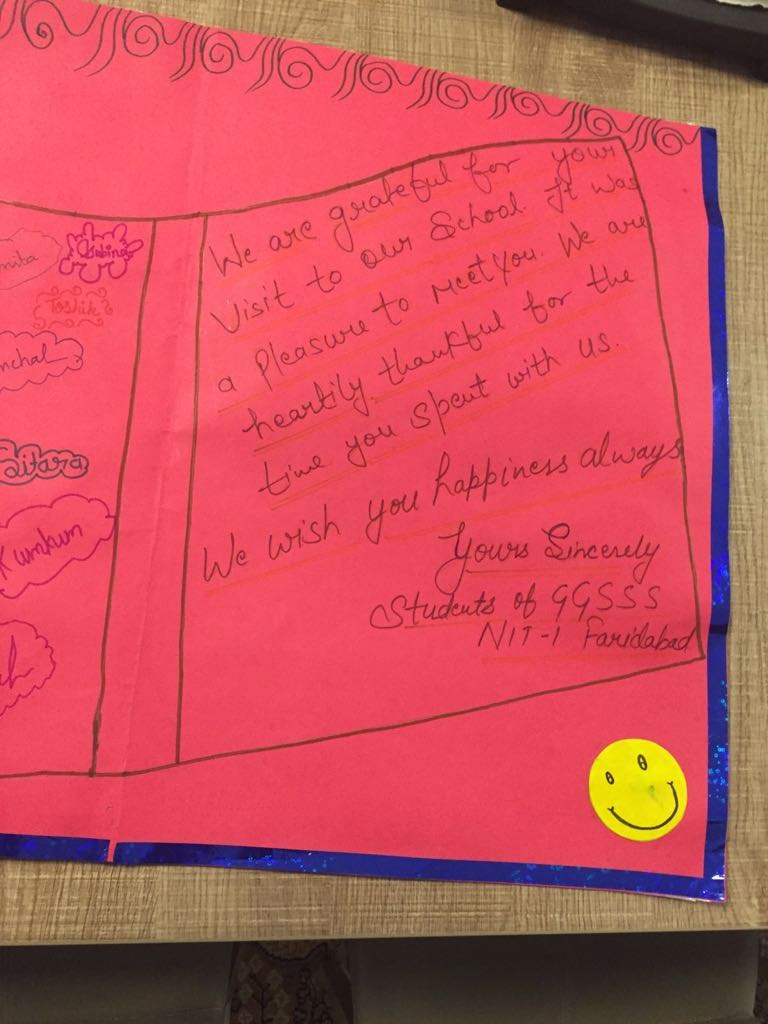 Toshik
Sitara
Kumkum
We are grateful for your
visit to our School. It was
a pleasure to meet you. We are
heartily thankful for the
time you spent with us.
We wish you happiness always
Yours Sincerely
Students of GGSSS
NIT-1 Faridabad